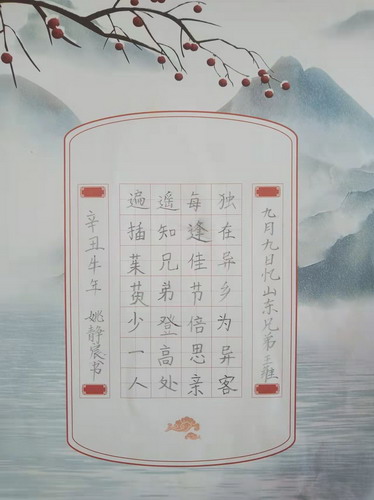 九月九日忆山东兄弟王维
独在异乡为异客
每逢佳节倍思亲
遥知兄弟登高处
遍插茱萸少一人
辛丑牛年 姚静宸书